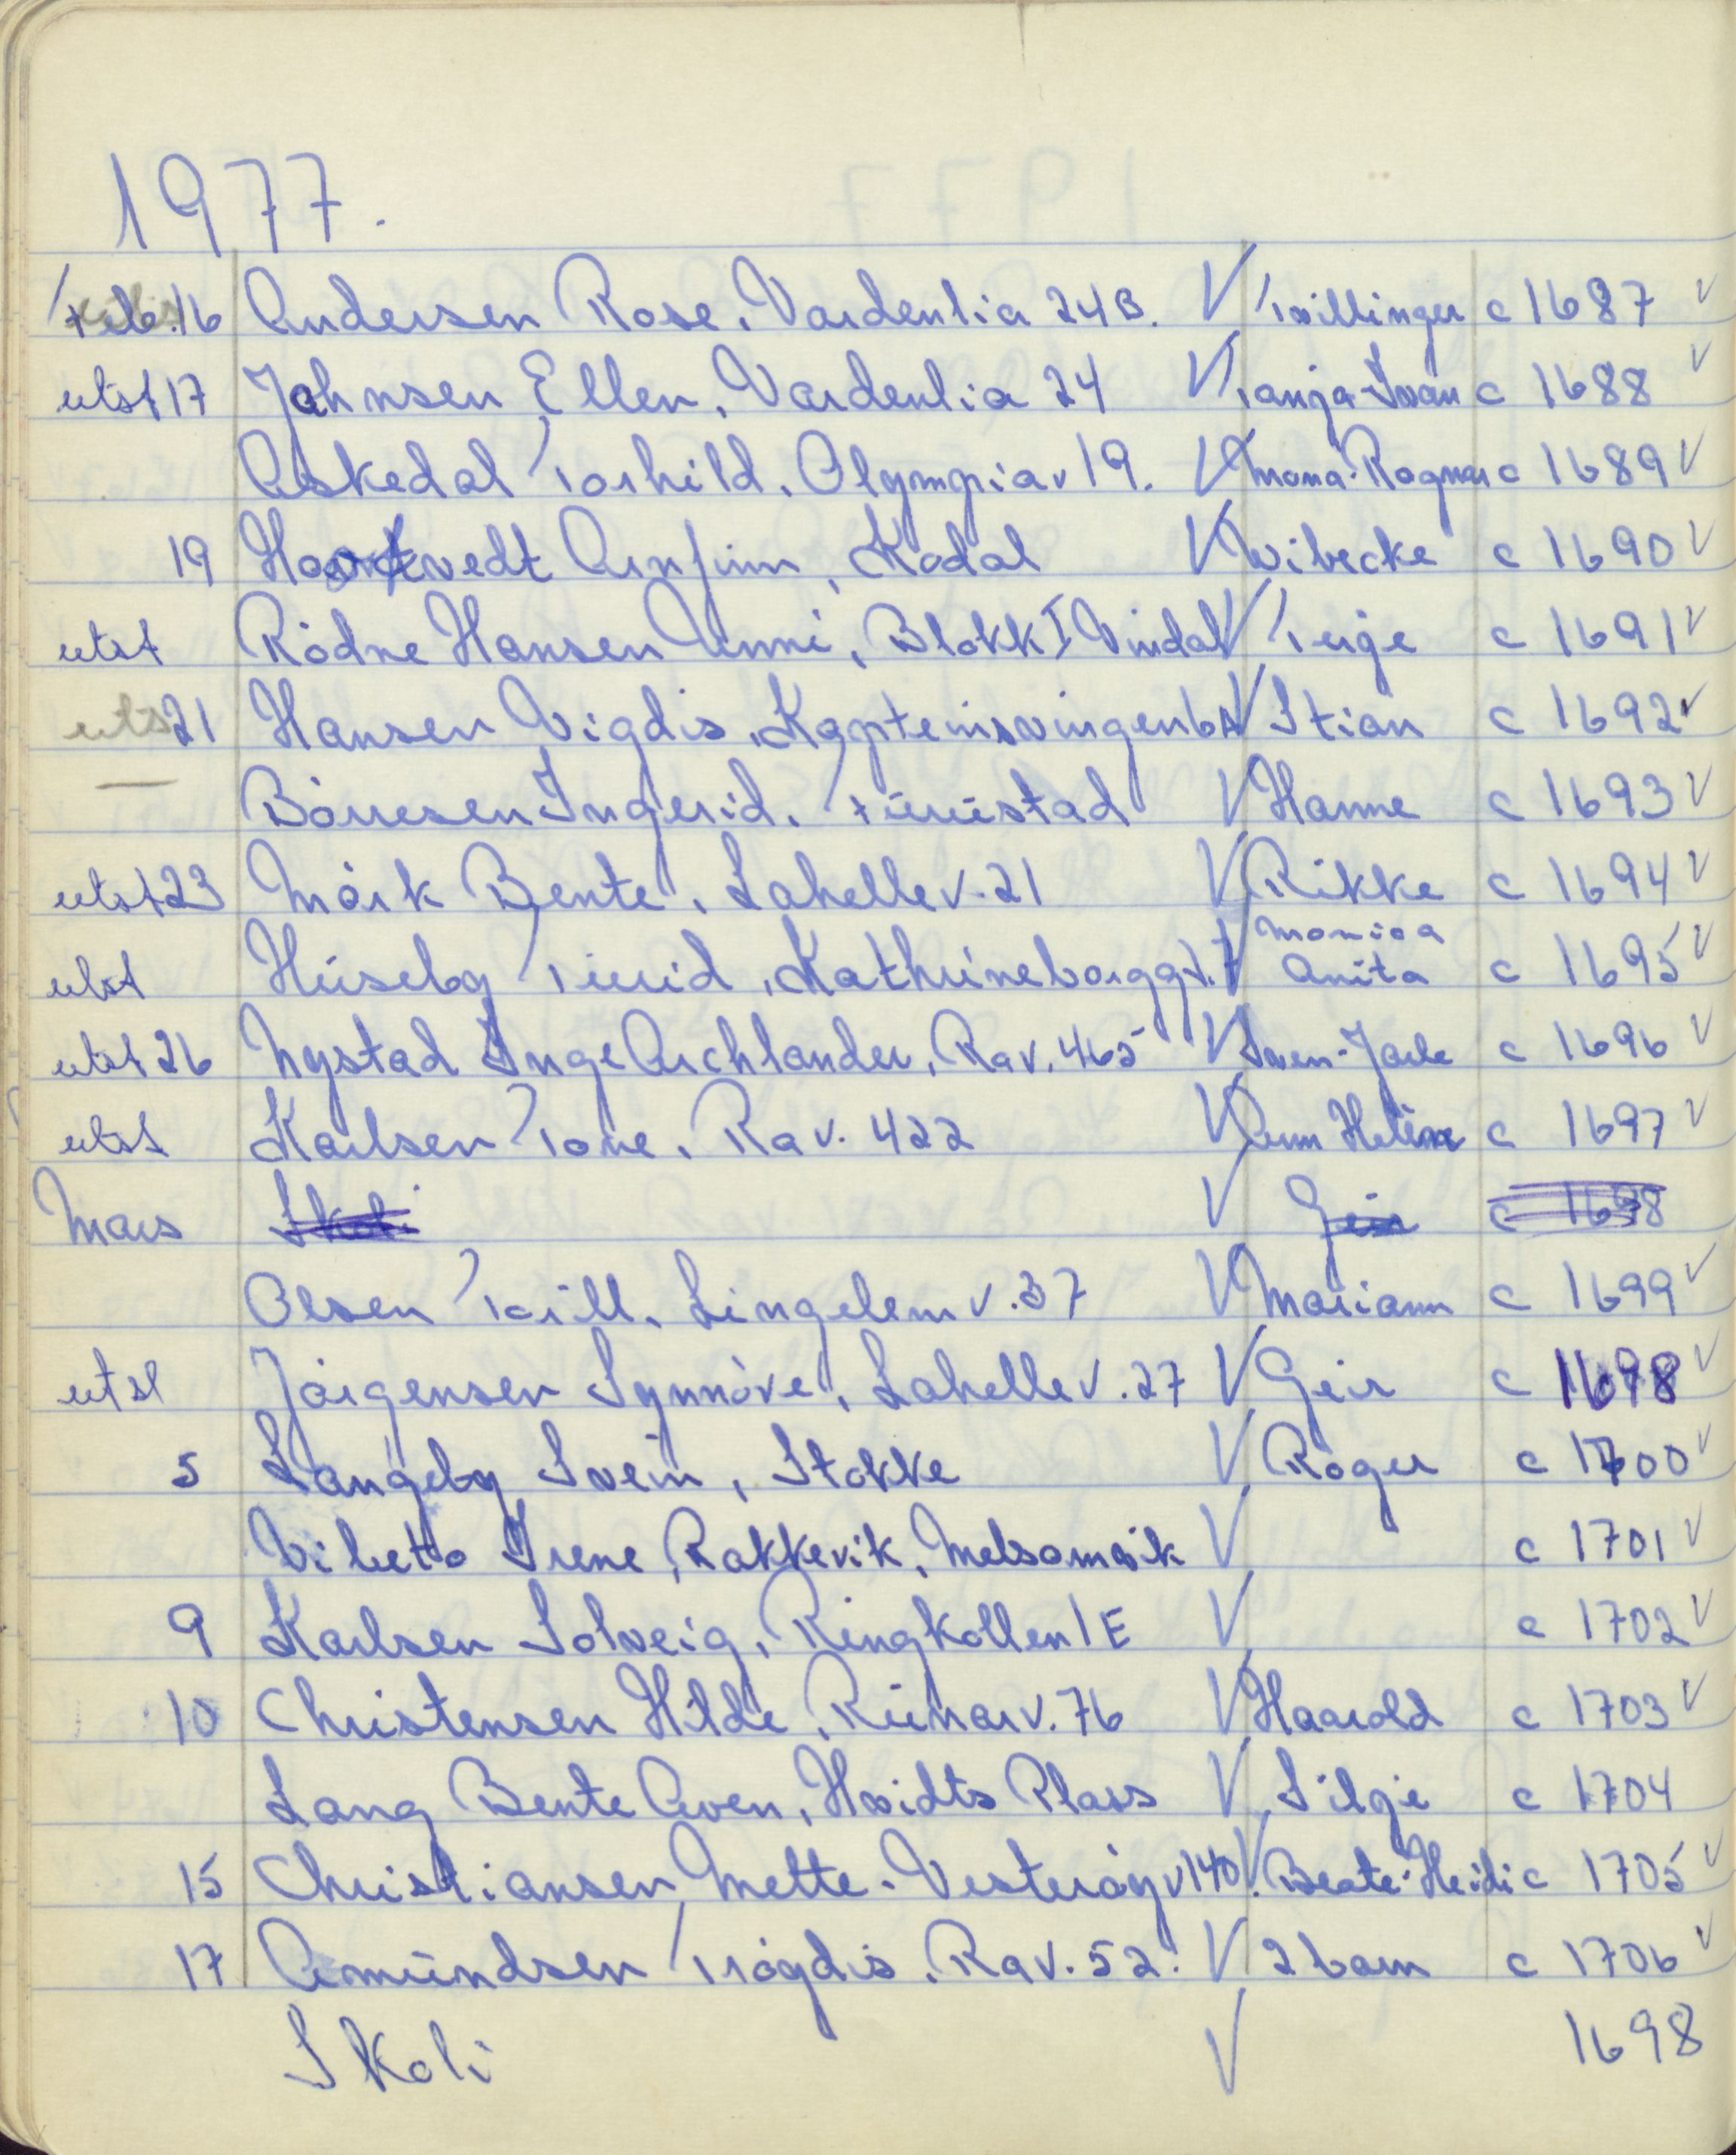 1977.
Feb. 16 Andersen Rose, Vardenlia 24B. V Tvillinger c 1687 V
utst 17 Johnsen Ellen, Vardenlia 24 V Tanja-Ivan c 1688 V
Askedal Torhild, Olympiav 19. V Mona-Ragnar c 1689 V
19 Hortvedt Arnfinn, Kodal V Wibecke c 1690 V
utst Rödne Hansen Anni, Blokk I Vindal V Terje c 1691 V
utst 21 Hansen Vigdis, Kapteinsvingen 6A V Stian c 1692 V
— Börresen Ingerid, Furustad V Hanne c 1693 V
utst 23 Mörk Bente, Lahellev. 21 V Rikke c 1694 V
utst Huseby Turid, Kathrineborggt. 7 V Monica Anita c 1695 V
utst 26 Nystad Inge Archlander, Rav. 465 V Sven-Jarle c 1696 V
utst Karlsen Tone, Rav. 422 V Ann Helen c 1697 V
Mars Skoli V Geir c 1698
Olsen Kirill, Lingelemv. 37 V Mariann c 1699 V
utst Jörgensen Synnöve, Lahellev. 27 V Geir c 1698 V
5 Langeby Svein, Stokke V Roger c 1700 V
Vibeto Irene, Rakkevik, Melsomvik V c 1701 V
9 Karlsen Solveig, Ringkollen 1E V c 1702 V
10 Christensen Hilde, Runarv. 76 V Haarold c 1703 V
Lang Bente Aven, Hvidts Plass V Silje c 1704
15 Christiansen Mette, Vesteröyv 140 V Beate-Heidi c 1705 V
17 Amundsen Trögdis, Rav. 52. V 2 barn c 1706 V
Skoli V 1698